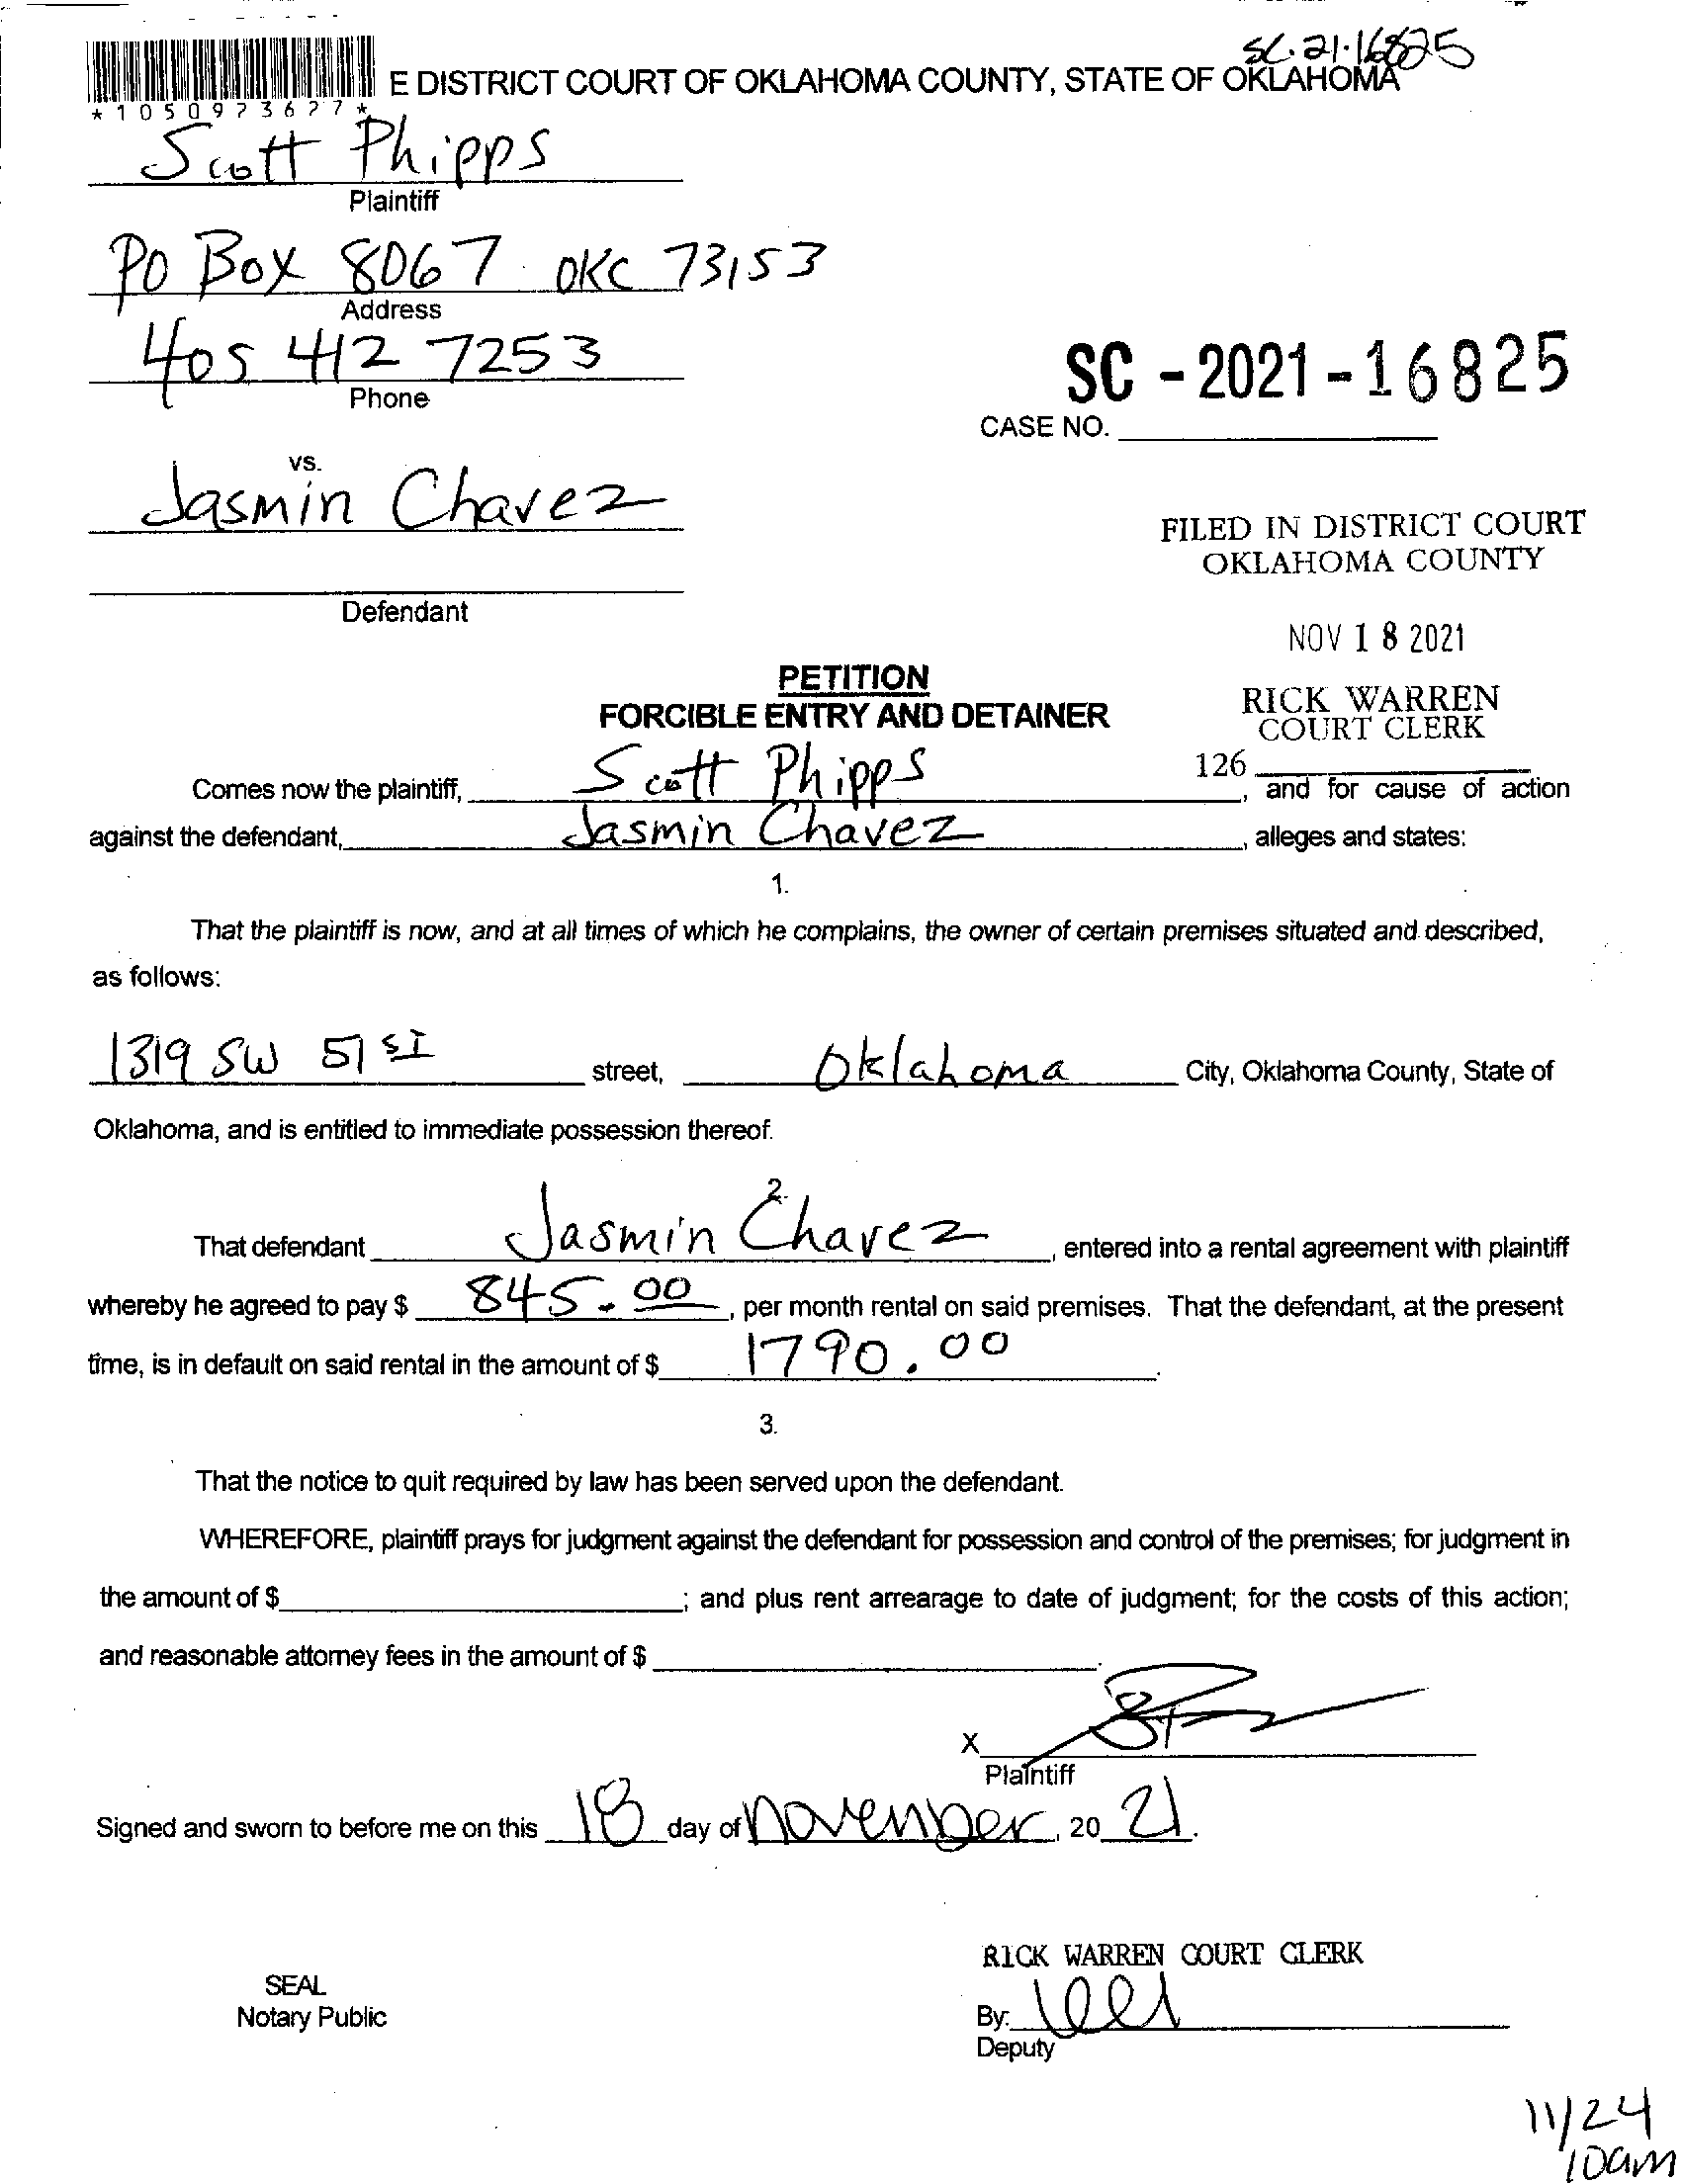 SC-21-16825
E DISTRICT COURT OF OKLAHOMA COUNTY, STATE OF OKLAHOMA
* 1 0 5 0 9 2 3 6 2 7 *
Scott Phipps
Plaintiff
PO Box 8067 OKC 73153
Address
405 412 7253
Phone
SC - 2021 - 16825
CASE NO.
vs.
Jasmin Chavez
Defendant
FILED IN DISTRICT COURT
OKLAHOMA COUNTY
NOV 18 2021
RICK WARREN
COURT CLERK
126
PETITION
FORCIBLE ENTRY AND DETAINER
Comes now the plaintiff, Scott Phipps, and for cause of action
against the defendant, Jasmin Chavez, alleges and states:
1.
That the plaintiff is now, and at all times of which he complains, the owner of certain premises situated and described,
as follows:
1319 SW 51 ST street, Oklahoma City, Oklahoma County, State of
Oklahoma, and is entitled to immediate possession thereof.
2.
That defendant Jasmin Chavez, entered into a rental agreement with plaintiff
whereby he agreed to pay $ 845.00, per month rental on said premises. That the defendant, at the present
time, is in default on said rental in the amount of $ 1790.00.
3.
That the notice to quit required by law has been served upon the defendant.
WHEREFORE, plaintiff prays for judgment against the defendant for possession and control of the premises; for judgment in
the amount of $ ; and plus rent arrearage to date of judgment; for the costs of this action;
and reasonable attorney fees in the amount of $ .
X
Plaintiff
Signed and sworn to before me on this 18 day of november, 20 21.
RICK WARREN COURT CLERK
SEAL
Notary Public
By:
Deputy
11/24
10am